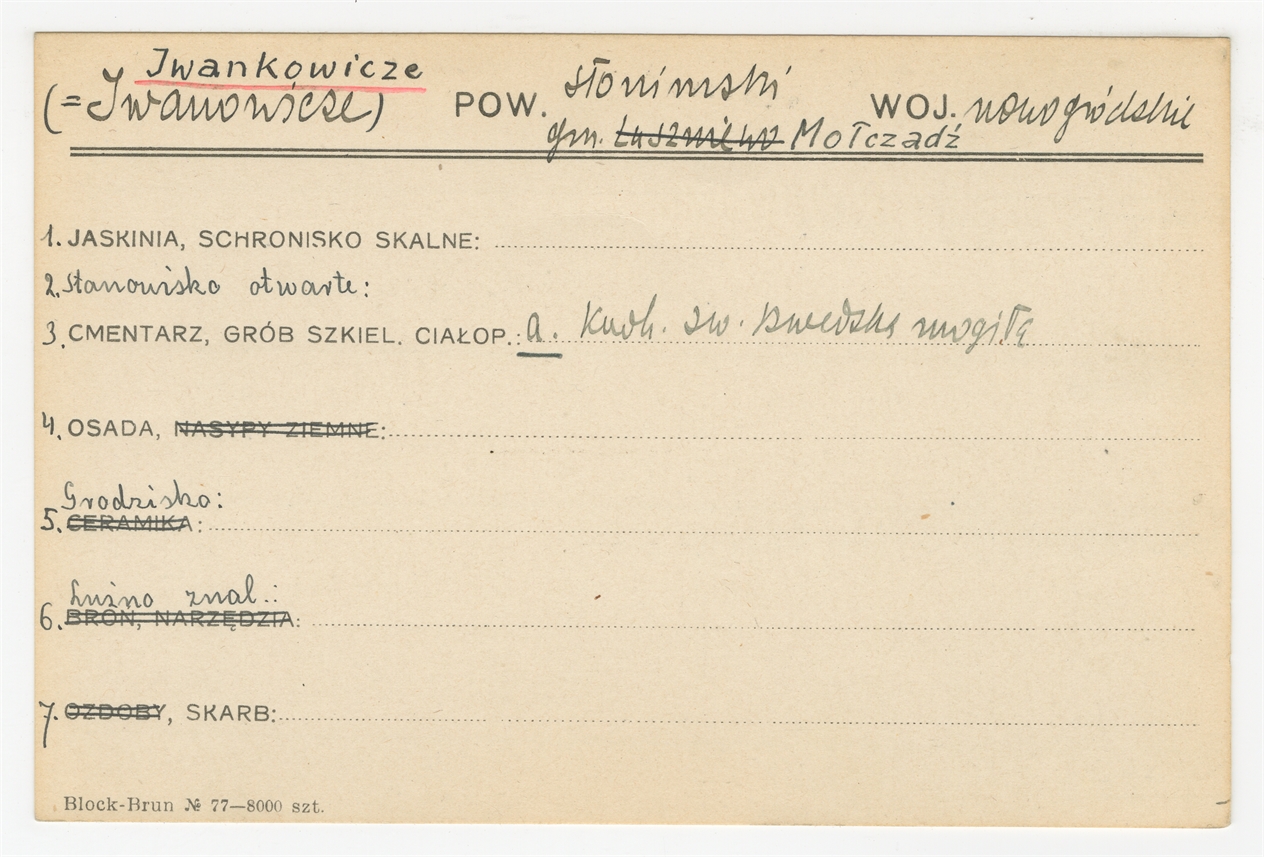 Iwankowicze
(=Iwanowicze) POW. słonimski WOJ. nowogródzkie
gm. Mołczadź
1. JASKINIA, SCHRONISKO SKALNE:
2. Stanowisko otwarte:
3. CMENTARZ, GRÓB SZKIEL. CIAŁOP.: a. Kurh. zw. szwedską mogiłą
4. OSADA, NASYPY ZIEMNE:
Grodzisko:
5. CERAMIKA:
Luźno znal.:
6. BROŃ, NARZĘDZIA:
7. OZDOBY, SKARB:
Block-Brun № 77—8000 szt.